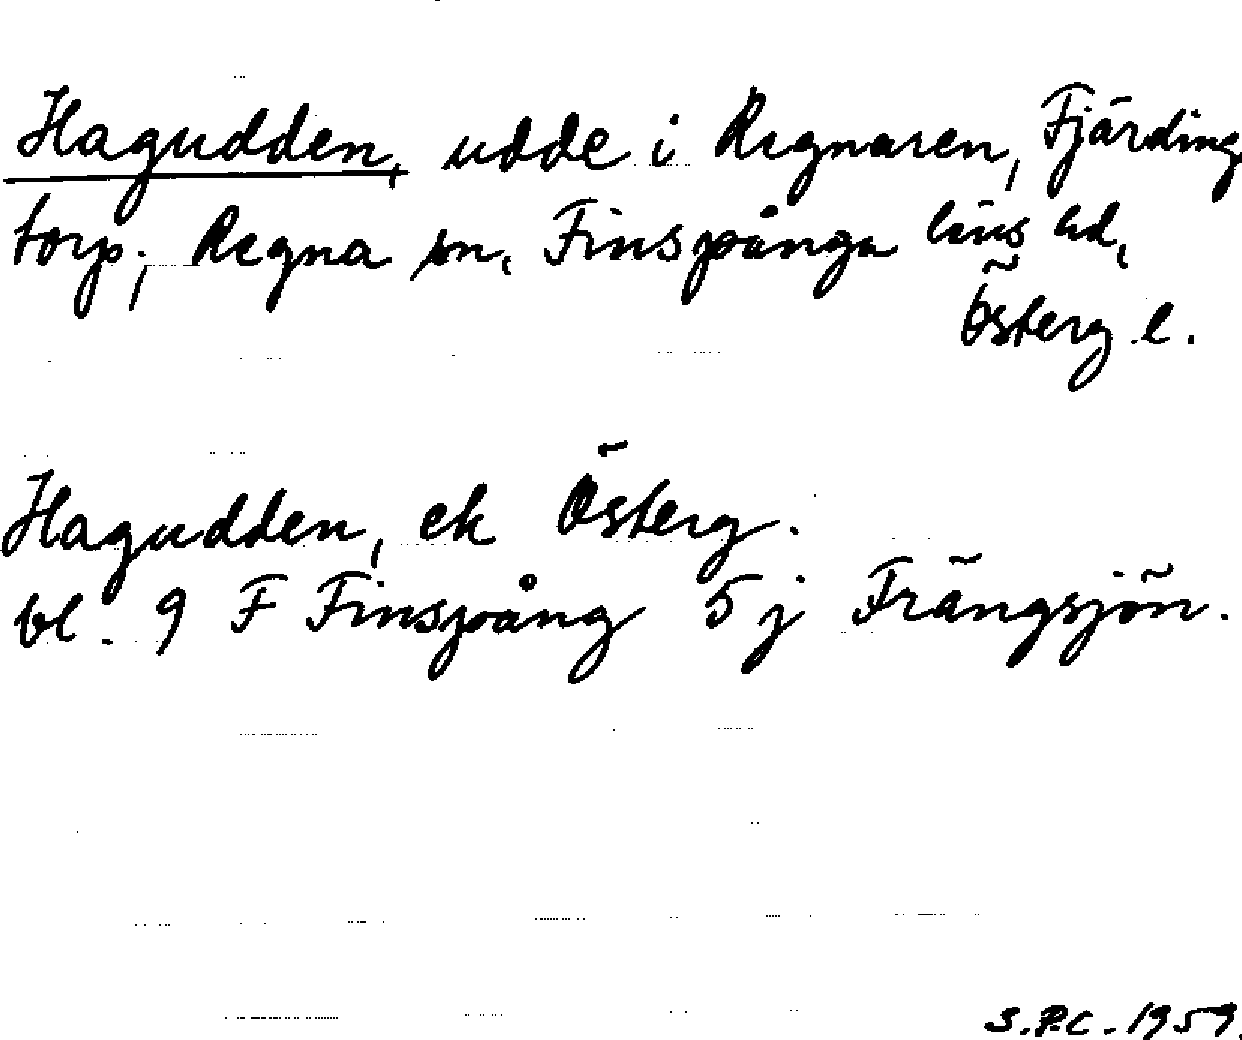 Hagudden, udde i Regnaren, Fjärding
torp, Regna sn, Finspånga läns hd,
Österg. l.
Hagudden, ek Österg.
bl. 9 F Finspång 5 j Frängsjön.
S.P.C. 1959.